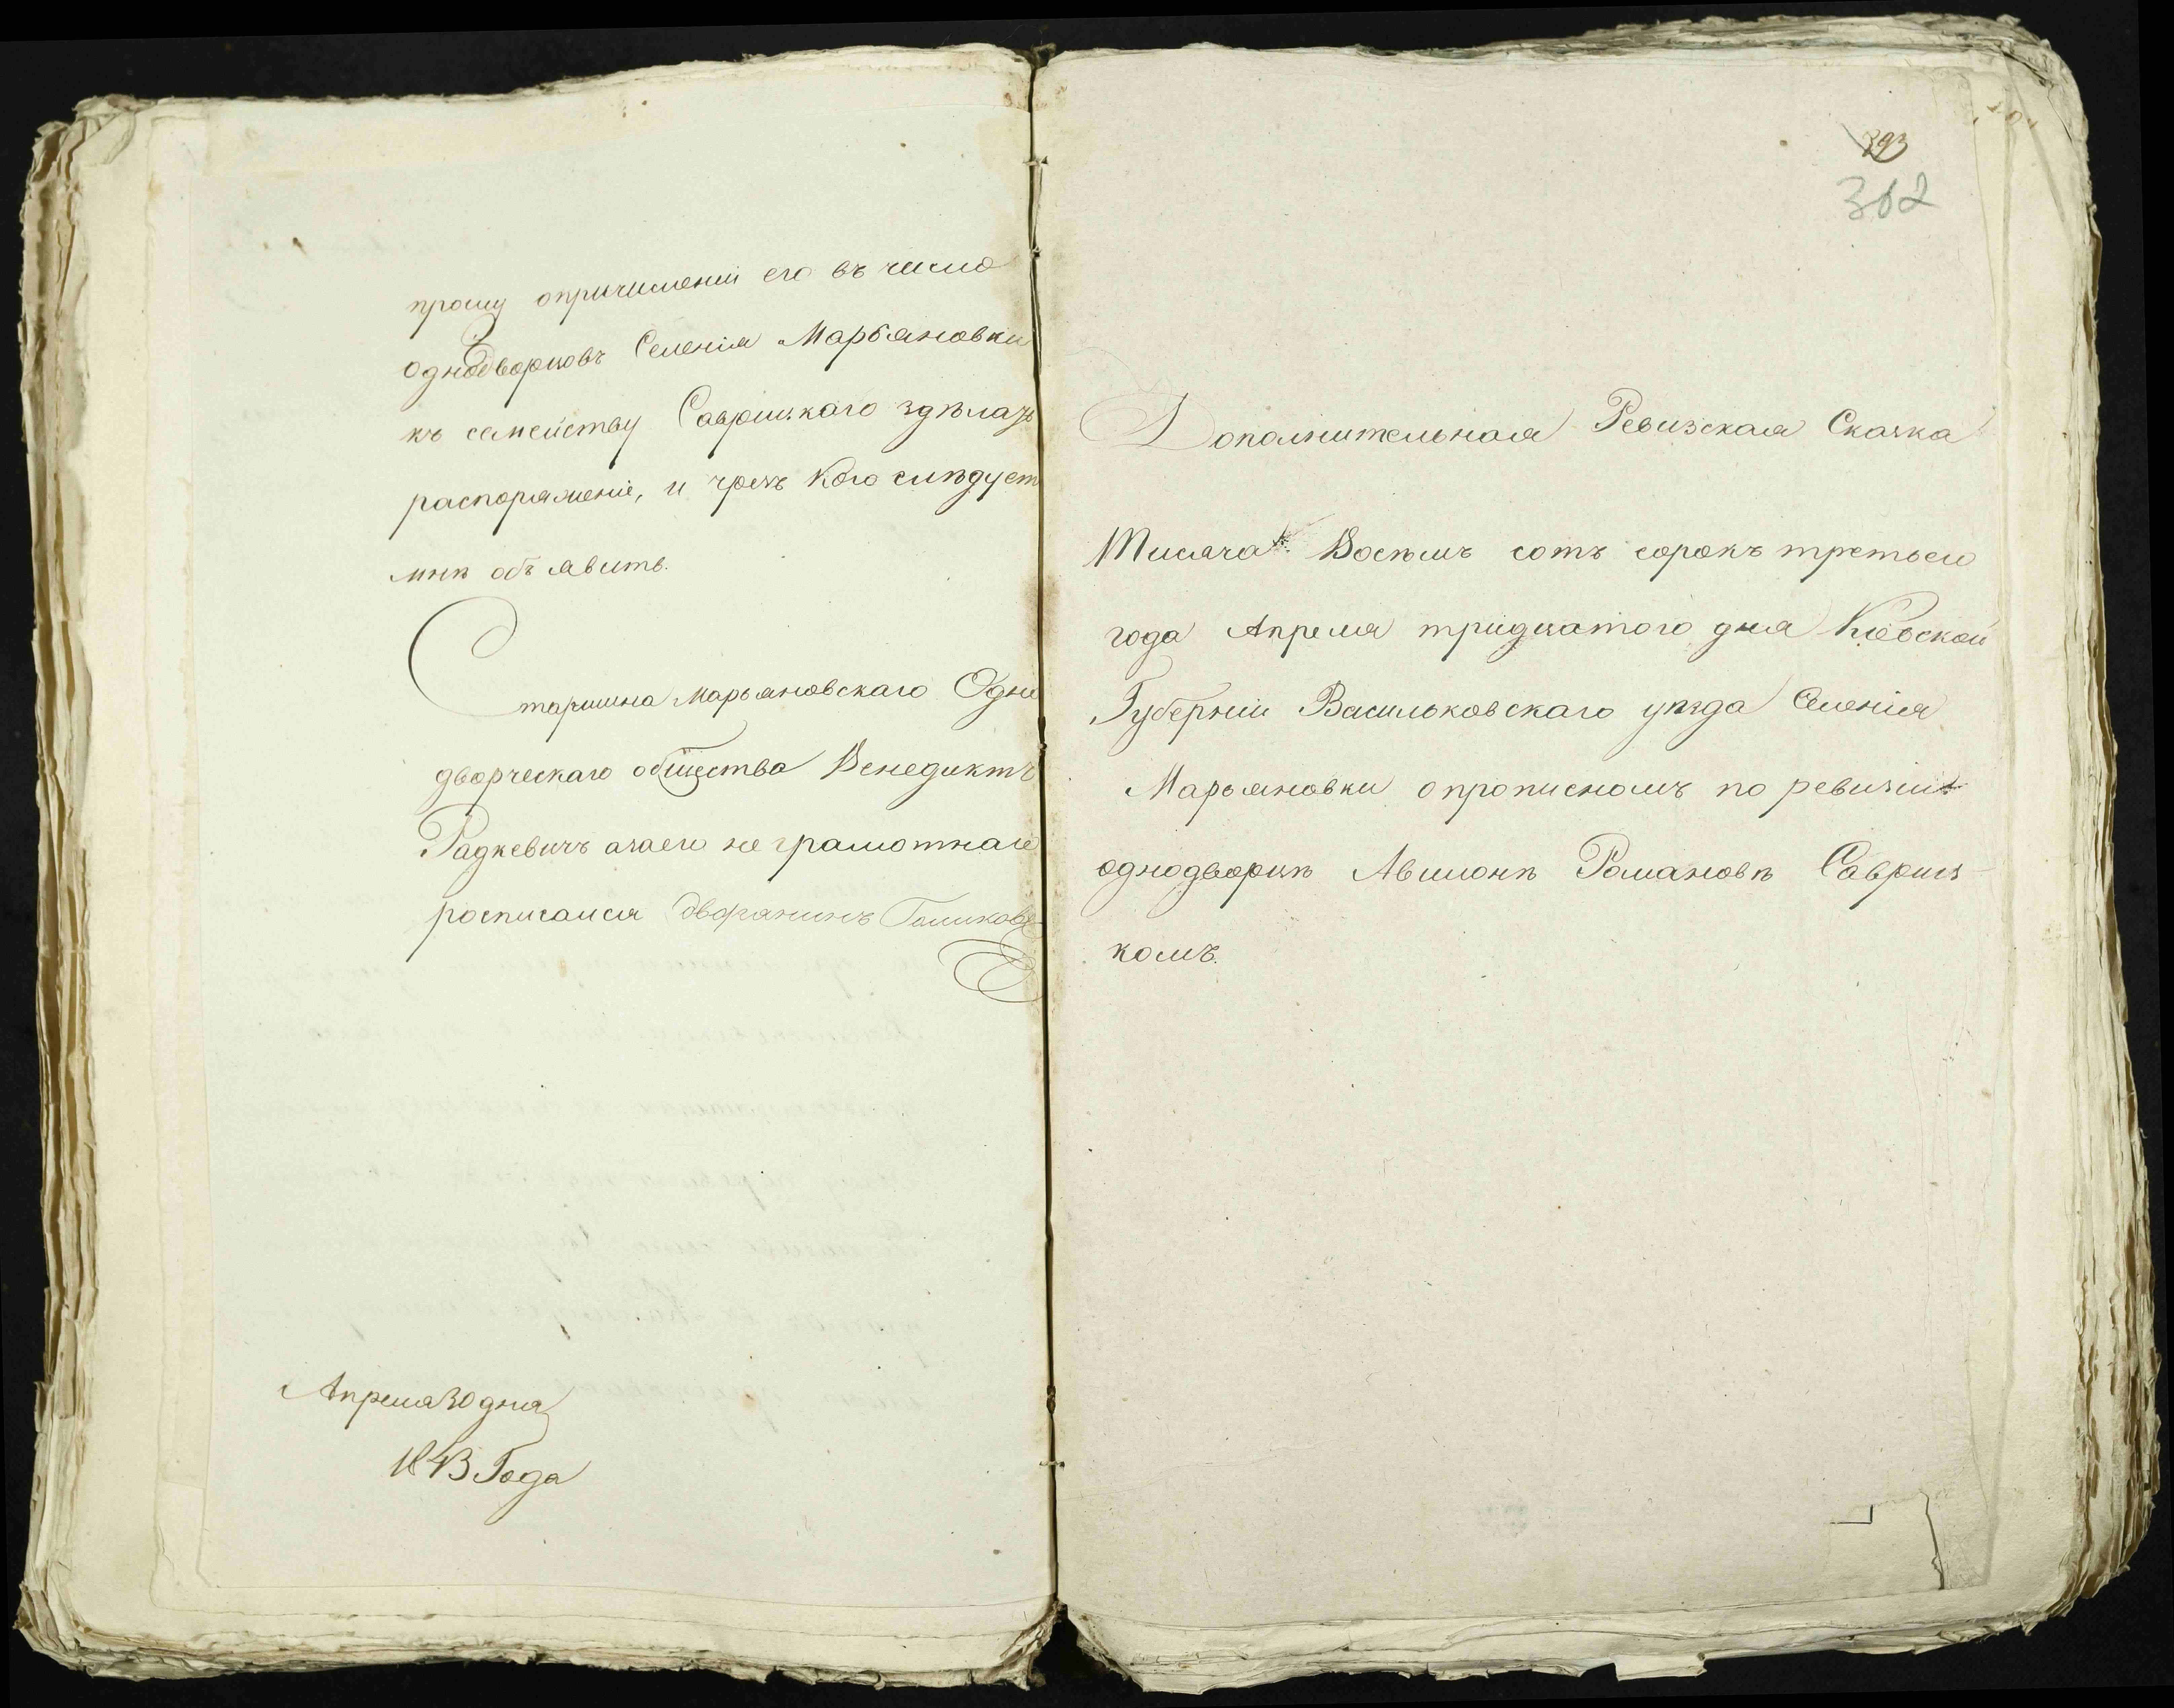 прошу опричисленіи его въ число
однодворцовъ Селенія Марьяновки
къ семейству Саврицкаго здѣлать
распоряженіе, и чрезъ кого слѣдует
мнѣ объявить.
Старшина Марьяновскаго Одно
дворческаго общества Венедиктъ
Радкевичъ азаего не грамотнаго
росписался дворянинъ
Апреля 30 дня
1843 Года
293
302
Дополнительная Ревизская Сказка
Тисяча Восѣмъ сотъ сорокъ третьего
года Апреля тридцатого дня Кіевской
Губерніи Васильковскаго уѣзда Селенія
Марьяновки опрописномъ по ревизіи
однодворцѣ Романовѣ Савриц
комъ.